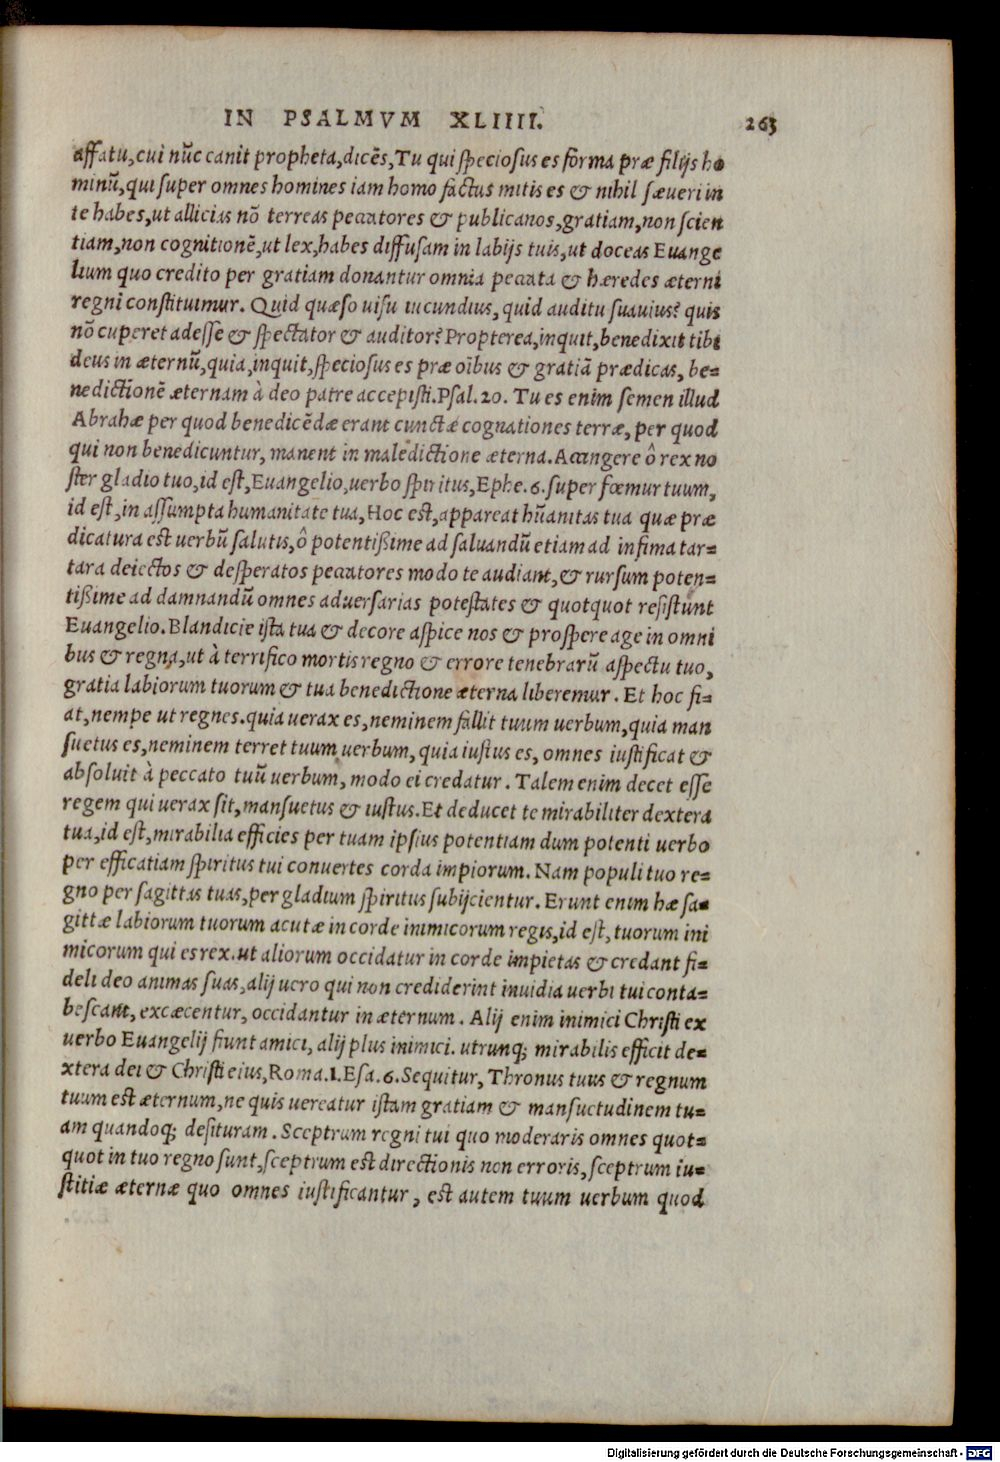 IN PSALMVM XLIIII. 263
affatu, cui nũc canit propheta, dicẽs, Tu qui speciosus es forma præ filijs ho
minũ, qui super omnes homines iam homo factus mitis es & nihil sæueri in
te habes, ut allicias nõ terreas peccatores & publicanos, gratiam, non scien
tiam, non cognitionẽ, ut lex, habes diffusam in labijs tuis, ut doceas Euange
lium quo credito per gratiam donantur omnia peccata & hæredes æterni
regni constituimur. Quid quæso uisu iucundius, quid auditu suauius? quis
nõ cuperet adesse & spectator & auditor? Propterea, inquit, benedixit tibi
deus in æternũ, quia, inquit, speciosus es præ oĩbus & gratiã prædicas, be=
nedictionẽ æternam à deo patre accepisti. Psal. 20. Tu es enim semen illud
Abrahæ per quod benedicẽdæ erant cunctæ cognationes terræ, per quod
qui non benedicuntur, manent in maledictione æterna. Accingere ô rex no
ster gladio tuo, id est, Euangelio, uerbo spiritus, Ephe. 6. super fœmur tuum,
id est, in assumpta humanitate tua, Hoc est, appareat hũanitas tua quæ præ
dicatura est uerbũ salutis, ô potentißime ad saluandũ etiam ad infima tar=
tara deiectos & desperatos peccatores modo te audiant, & rursum poten=
tißime ad damnandũ omnes aduersarias potestates & quotquot resistunt
Euangelio. Blandicie ista tua & decore aspice nos & prospere age in omni
bus & regna, ut à terrifico mortis regno & errore tenebrarũ aspectu tuo,
gratia labiorum tuorum & tua benedictione æterna liberemur. Et hoc fi=
at, nempe ut regnes. quia uerax es, neminem fallit tuum uerbum, quia man
suetus es, neminem terret tuum uerbum, quia iustus es, omnes iustificat &
absoluit à peccato tuũ uerbum, modo ei credatur. Talem enim decet esse
regem qui uerax sit, mansuetus & iustus. Et deducet te mirabiliter dextera
tua, id est, mirabilia efficies per tuam ipsius potentiam dum potenti uerbo
per efficatiam spiritus tui conuertes corda impiorum. Nam populi tuo re=
gno per sagittas tuas, per gladium spiritus subijcientur. Erunt enim hæ sa=
gittæ labiorum tuorum acutæ in corde inimicorum regis, id est, tuorum ini
micorum qui es rex. ut aliorum occidatur in corde impietas & credant fi=
deli deo animas suas, alij uero qui non crediderint inuidia uerbi tui conta=
bescant, excæcentur, occidantur in æternum. Alij enim inimici Christi ex
uerbo Euangelij fiunt amici, alij plus inimici. utrunq; mirabilis efficit de=
xtera dei & Christi eius, Roma. 1. Esa. 6. Sequitur, Thronus tuus & regnum
tuum est æternum, ne quis uereatur istam gratiam & mansuetudinem tu=
am quandoq; desituram. Sceptrum regni tui quo moderaris omnes quot=
quot in tuo regno sunt, sceptrum est directionis non erroris, sceptrum iu=
stitiæ æternæ quo omnes iustificantur, est autem tuum uerbum quod
Digitalisierung gefördert durch die Deutsche Forschungsgemeinschaft - DFG